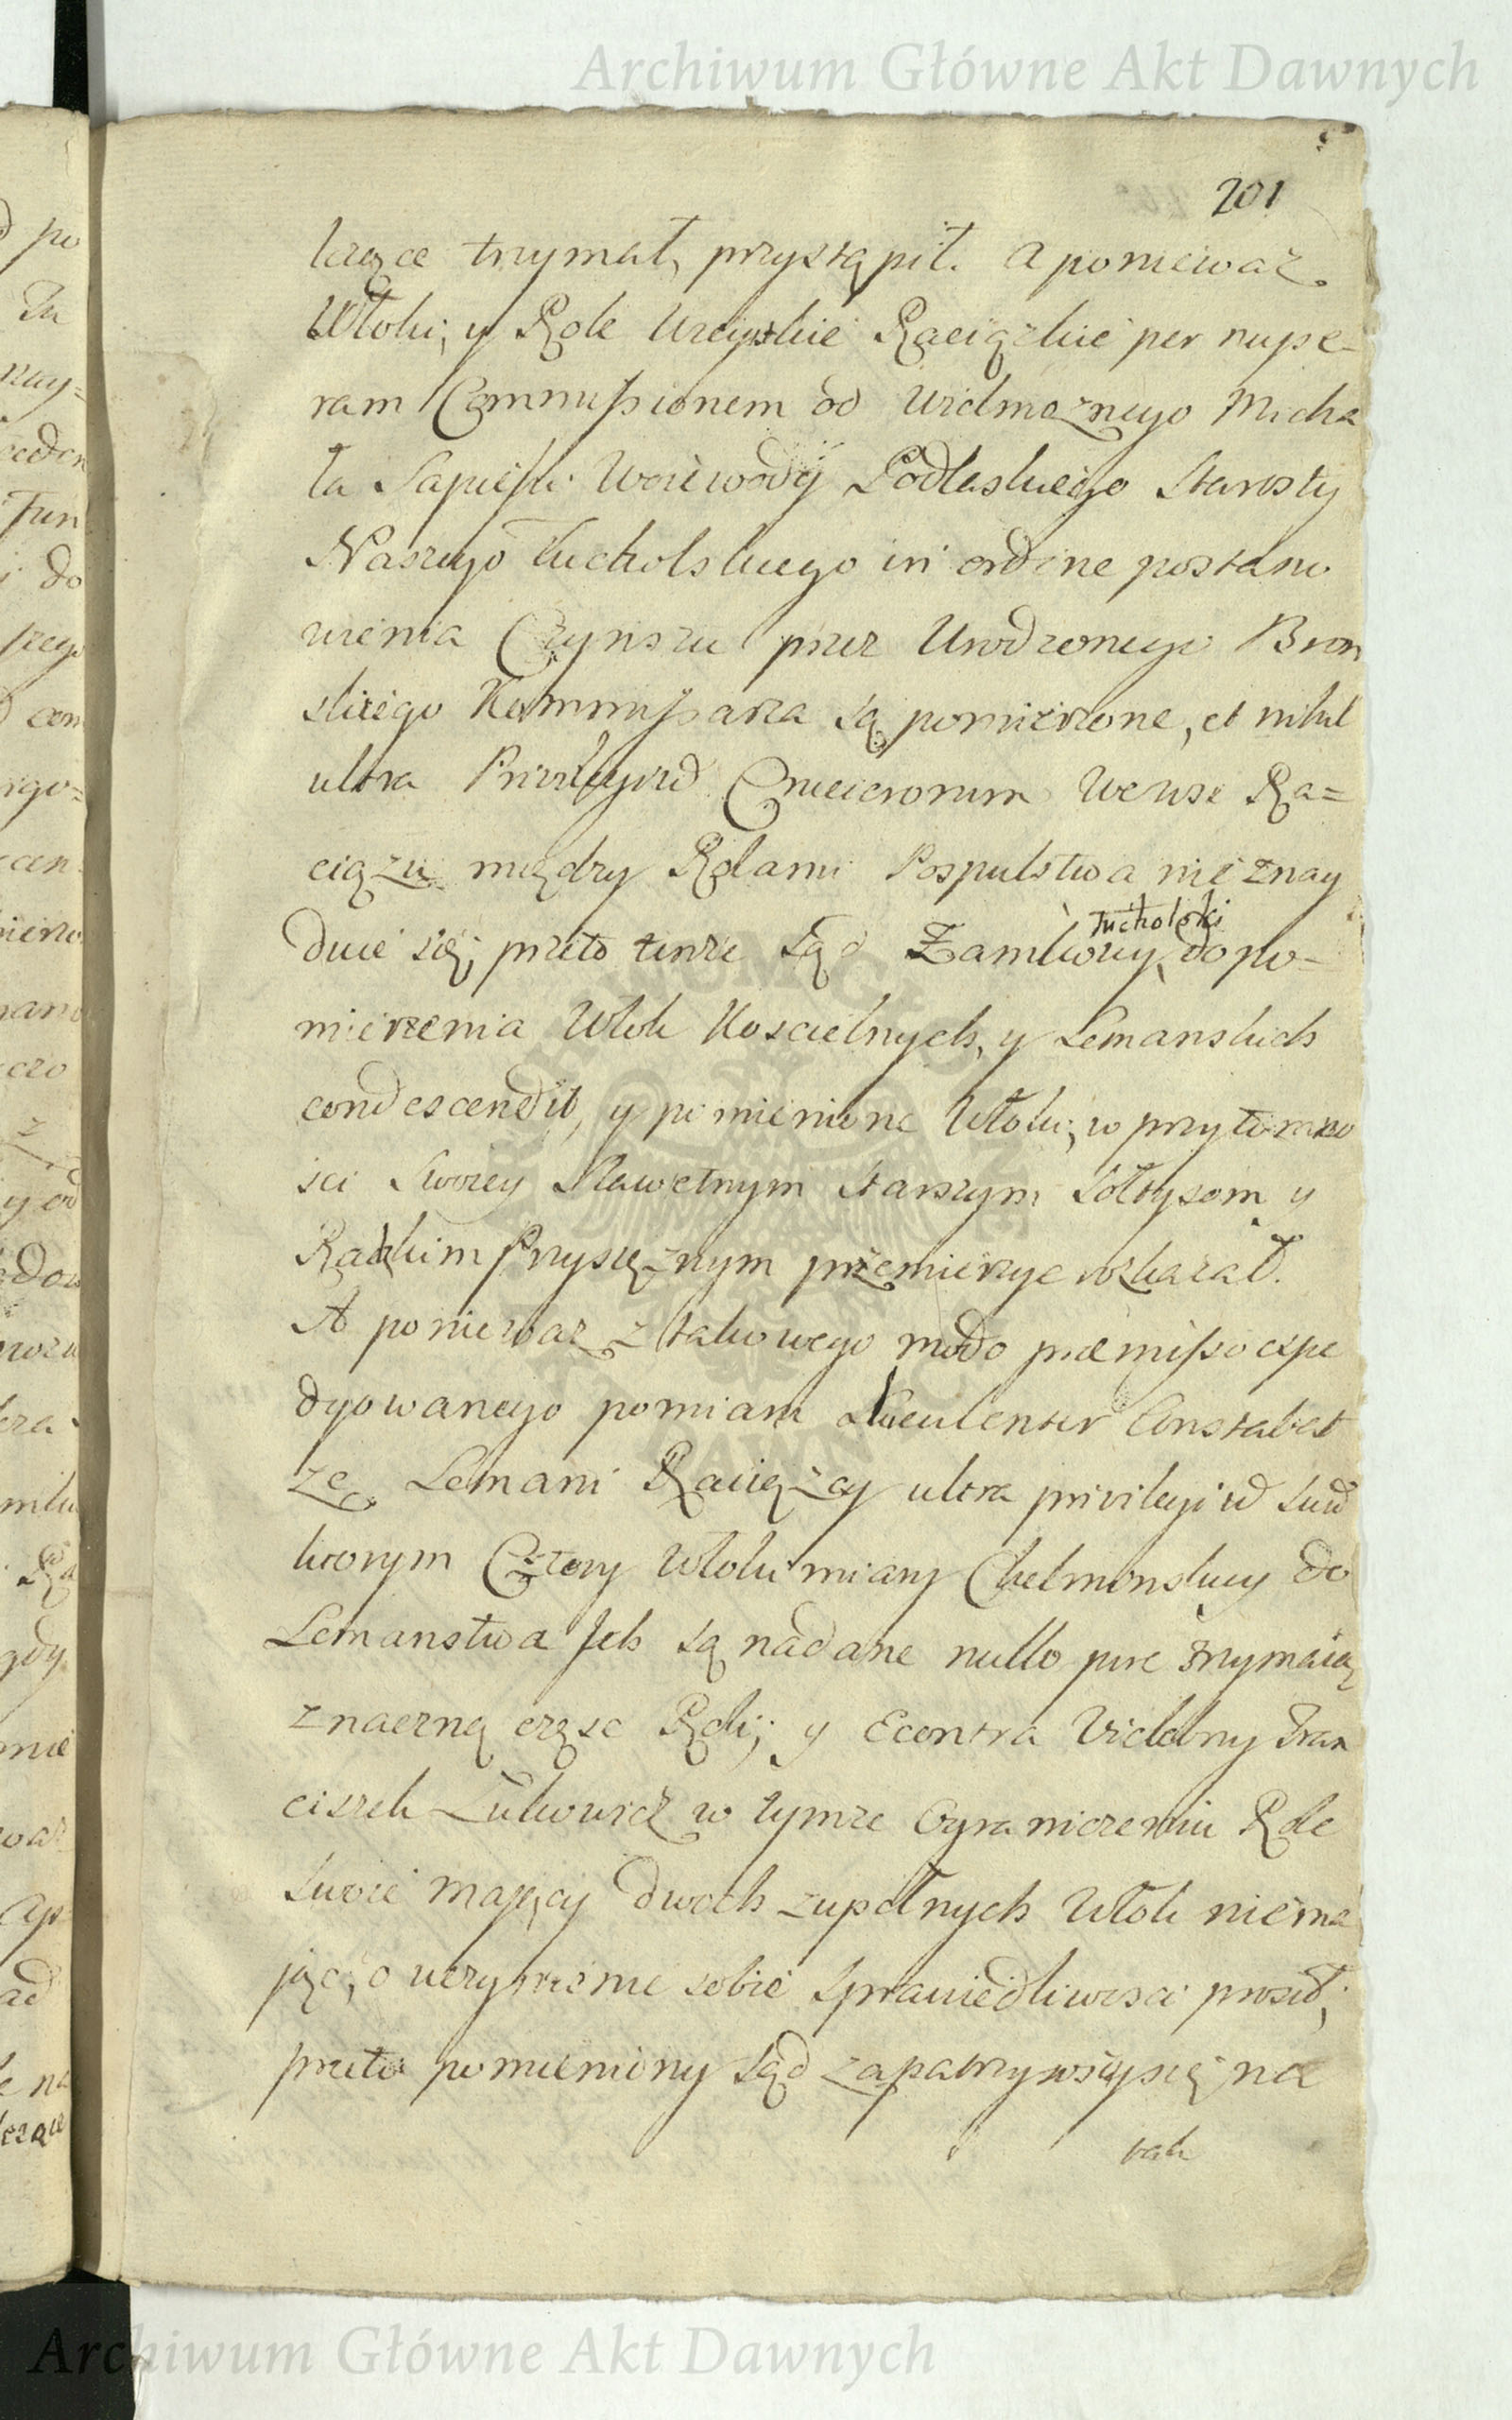 Archiwum Główne Akt Dawnych
201
leżące trzymał, przystąpił. A ponieważ
Włoki, y Role Uczyskie Raciązkie per nupe-
ram Commissionem od Wielmoznego Micha
ła Sapiehi Woiewody Podlaskiego Starosty
Naszego Tucholskiego in ordine postano
wienia Czynszu przez Urodzonego Bron
skiego Kommissarza są pomierzone, et nihil
ultra Privilegiud Cmeicionum We wsi Ra=
ciązu między Rolami Pospulstwa nie znay
duie się; przeto tenze Sąd Zamkowy Tucholski do po-
mierzenia Włok Koscielnych, y Lemanskich
condescendit, y pomienione Włoki, w przytomno
sci Swoiey Sławetnym Starszym Sołtysom y
Radzkim Przysięznym przemierzyc rozkazał.
A poniewaz z takowego modo præmisso expe
dyowanego pomiaru Luculenter Constabat
ze Lemani Raciązcy ultra privilegiud Suud
ktorym Cztery Włoki miary Chelminskiey do
Lemanstwa Jch są nadane nullo jure trzymaią
znaczną częsc Roli; y Econtra Wielebny Fran
ciszek Zukowicz w tymze Ograniczeniu Role
Swoie maiący dwoch zupełnych Włok niema
jąc, o uczynienie sobie Sprawiedliwosci prosił;
przeto pomieniony Sąd zapatrzywszy się na
tak
Archiwum Główne Akt Dawnych